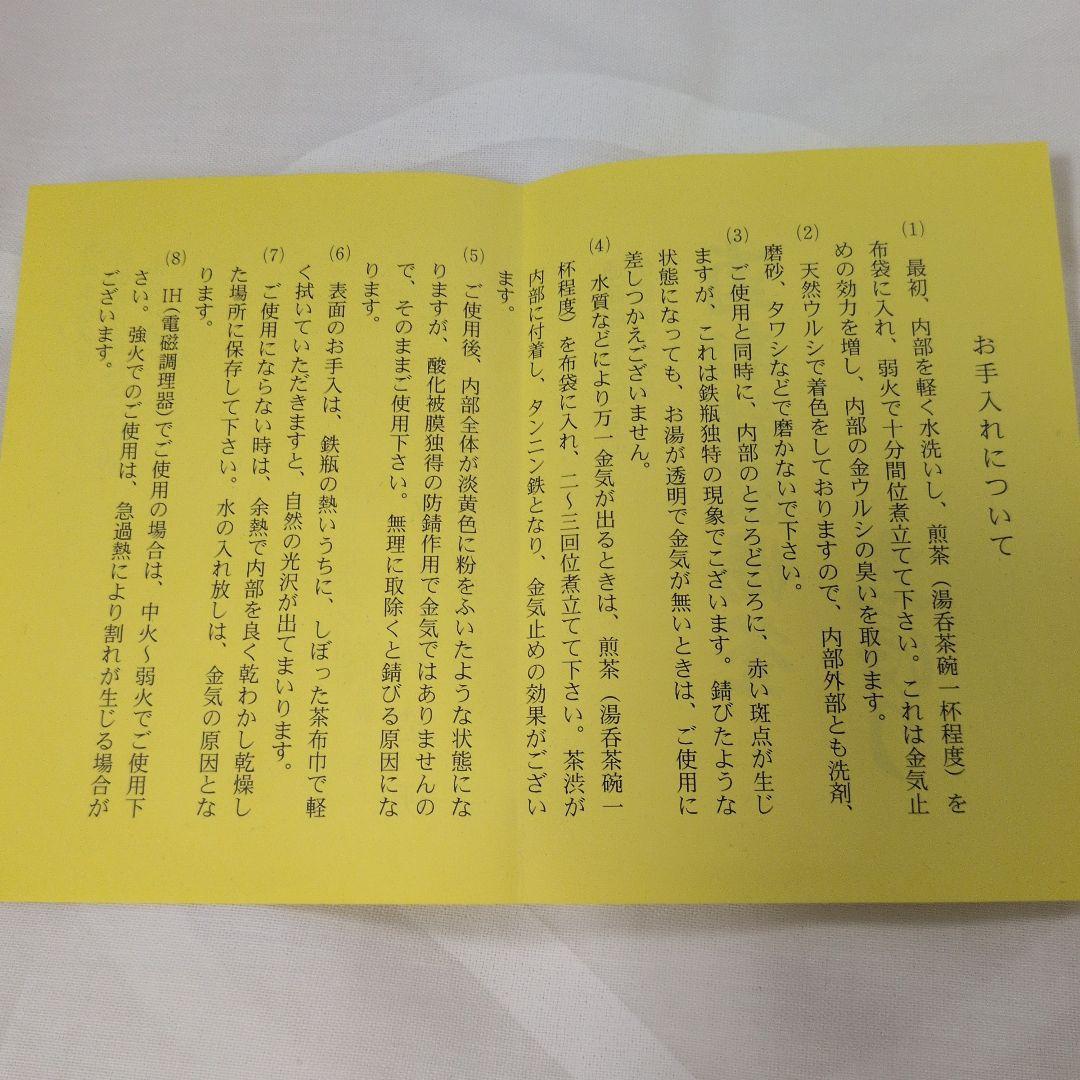 お手入れについて
(1) 最初、内部を軽く水洗いし、煎茶（湯呑茶碗一杯程度）を
布袋に入れ、弱火で十分間位煮立てて下さい。これは金気止
めの効力を増し、内部の金ウルシの臭いを取ります。
(2) 天然ウルシで着色をしておりますので、内部外部とも洗剤、
磨砂、タワシなどで磨かないで下さい。
(3) ご使用と同時に、内部のところどころに、赤い斑点が生じ
ますが、これは鉄瓶独特の現象でこざいます。錆びたような
状態になっても、お湯が透明で金気が無いときは、ご使用に
差しつかえございません。
(4) 水質などにより万一金気が出るときは、煎茶（湯呑茶碗一
杯程度）を布袋に入れ、二～三回位煮立てて下さい。茶渋が
内部に付着し、タンニン鉄となり、金気止めの効果がござい
ます。
(5) ご使用後、内部全体が淡黄色に粉をふいたような状態にな
りますが、酸化被膜独得の防錆作用で金気ではありませんの
で、そのままご使用下さい。無理に取除くと錆びる原因にな
ります。
(6) 表面のお手入は、鉄瓶の熱いうちに、しぼった茶布巾で軽
く拭いていただきますと、自然の光沢が出てまいります。
(7) ご使用にならない時は、余熱で内部を良く乾わかし乾燥し
た場所に保存して下さい。水の入れ放しは、金気の原因とな
ります。
(8) IH(電磁調理器)でご使用の場合は、中火～弱火でご使用下
さい。強火でのご使用は、急過熱により割れが生じる場合が
ございます。